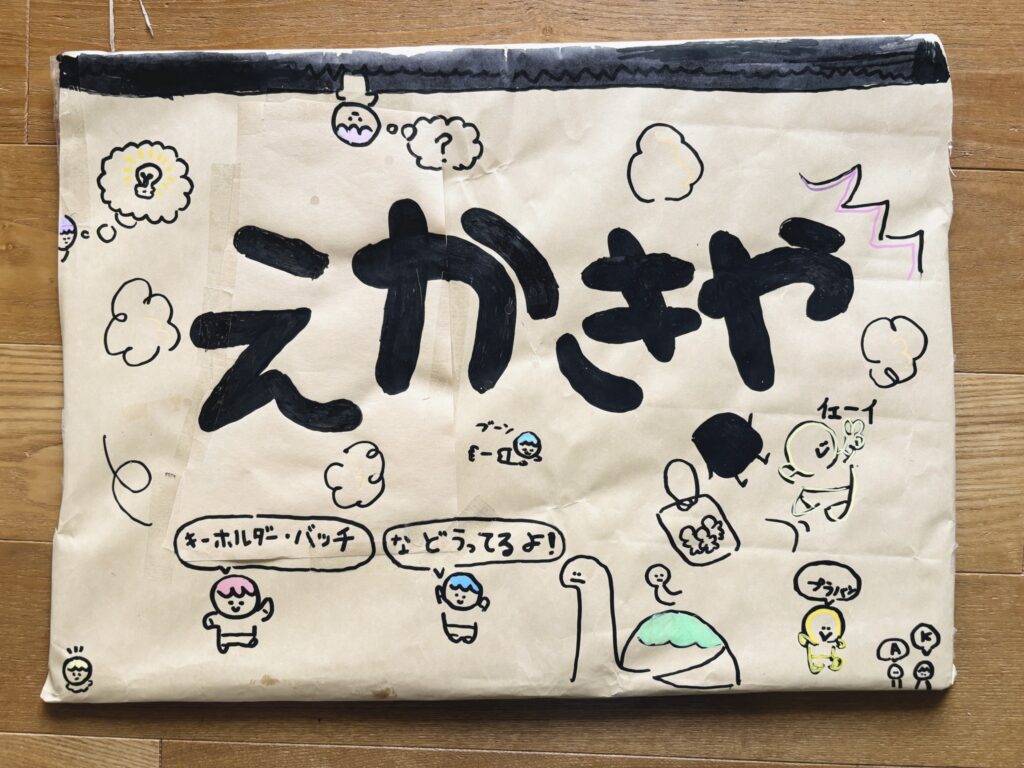 ?
えかきや
イェーイ
ブーン
キーホルダー・バッチ
などうってるよ!
プラバン
A
K